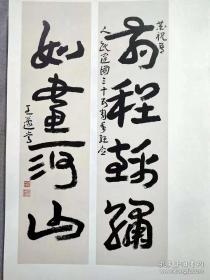 前程錦繡
人民建國三十五周年紀念
如畫河山
王遐舉